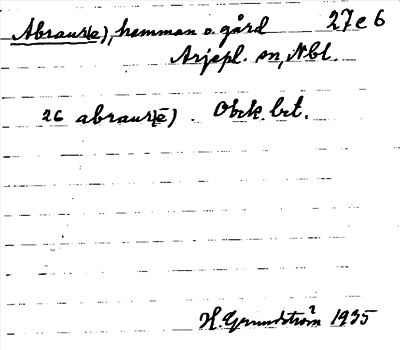 Abraur(e), hemman o. gård 27 e 6
Arjepl. sn, Nbl.
26 abraur(ē). Obek. bet.
H. Grundström 1935